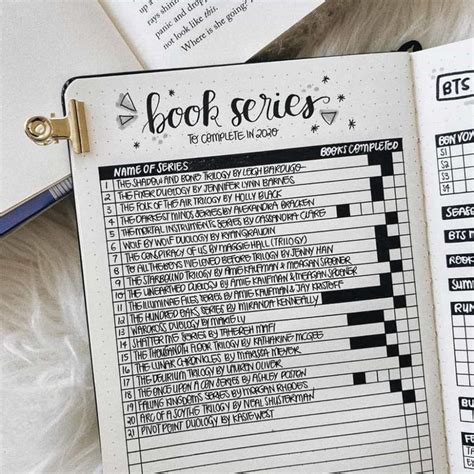 book series
TO COMPLETE IN 2020
NAME OF SERIES BOOKS COMPLETED
1 THE SHADOW AND BONE TRILOGY BY LEIGH BARDUGO
2 THE FIXER DUOLOGY BY JENNIFER LYNN BARNES
3 THE FOLK OF THE AIR TRILOGY BY HOLLY BLACK
4 THE DARKEST MINDS SERIES BY ALEXANDRA BRACKEN
5 THE MORTAL INSTRUMENTS SERIES BY CASSANDRA CLARE
6 WOLF BY WOLF DUOLOGY BY RYAN GRAUDIN
7 THE CONSPIRACY OF US BY MAGGIE HALL (TRILOGY)
8 TO ALL THE BOYS I'VE LOVED BEFORE TRILOGY BY JENNY HAN
9 THE STARBOUND TRILOGY BY AMIE KAUFMAN & MEAGAN SPOONER
10 THE UNEARTHED DUOLOGY BY AMIE KAUFMAN & MEGAN SPOONER
11 THE ILLUMINAE FILES SERIES BY AMIE KAUFMAN & JAY KRISTOFF
12 THE HUNDRED OAKS SERIES BY MIRANDA KENNEALLY
13 WARCROSS DUOLOGY BY MARIE LU
14 SHATTER ME SERIES BY TAHEREH MAFI
15 THE THOUSANDTH FLOOR TRILOGY BY KATHARINE MCGEE
16 THE LUNAR CHRONICLES BY MARISSA MEYER
17 THE DELIRIUM TRILOGY BY LAUREN OLIVER
18 THE ONCE UPON A CON SERIES BY ASHLEY POSTON
19 FALLING KINGDOMS SERIES BY MORGAN RHODES
20 ARC OF A SCYTHE TRILOGY BY NEAL SHUSTERMAN
21 PIVOT POINT DUOLOGY BY KASIE WEST
panic and drop
not look like this
Where is she going?
BTS
BON VOY
S1
S2
S3
S4